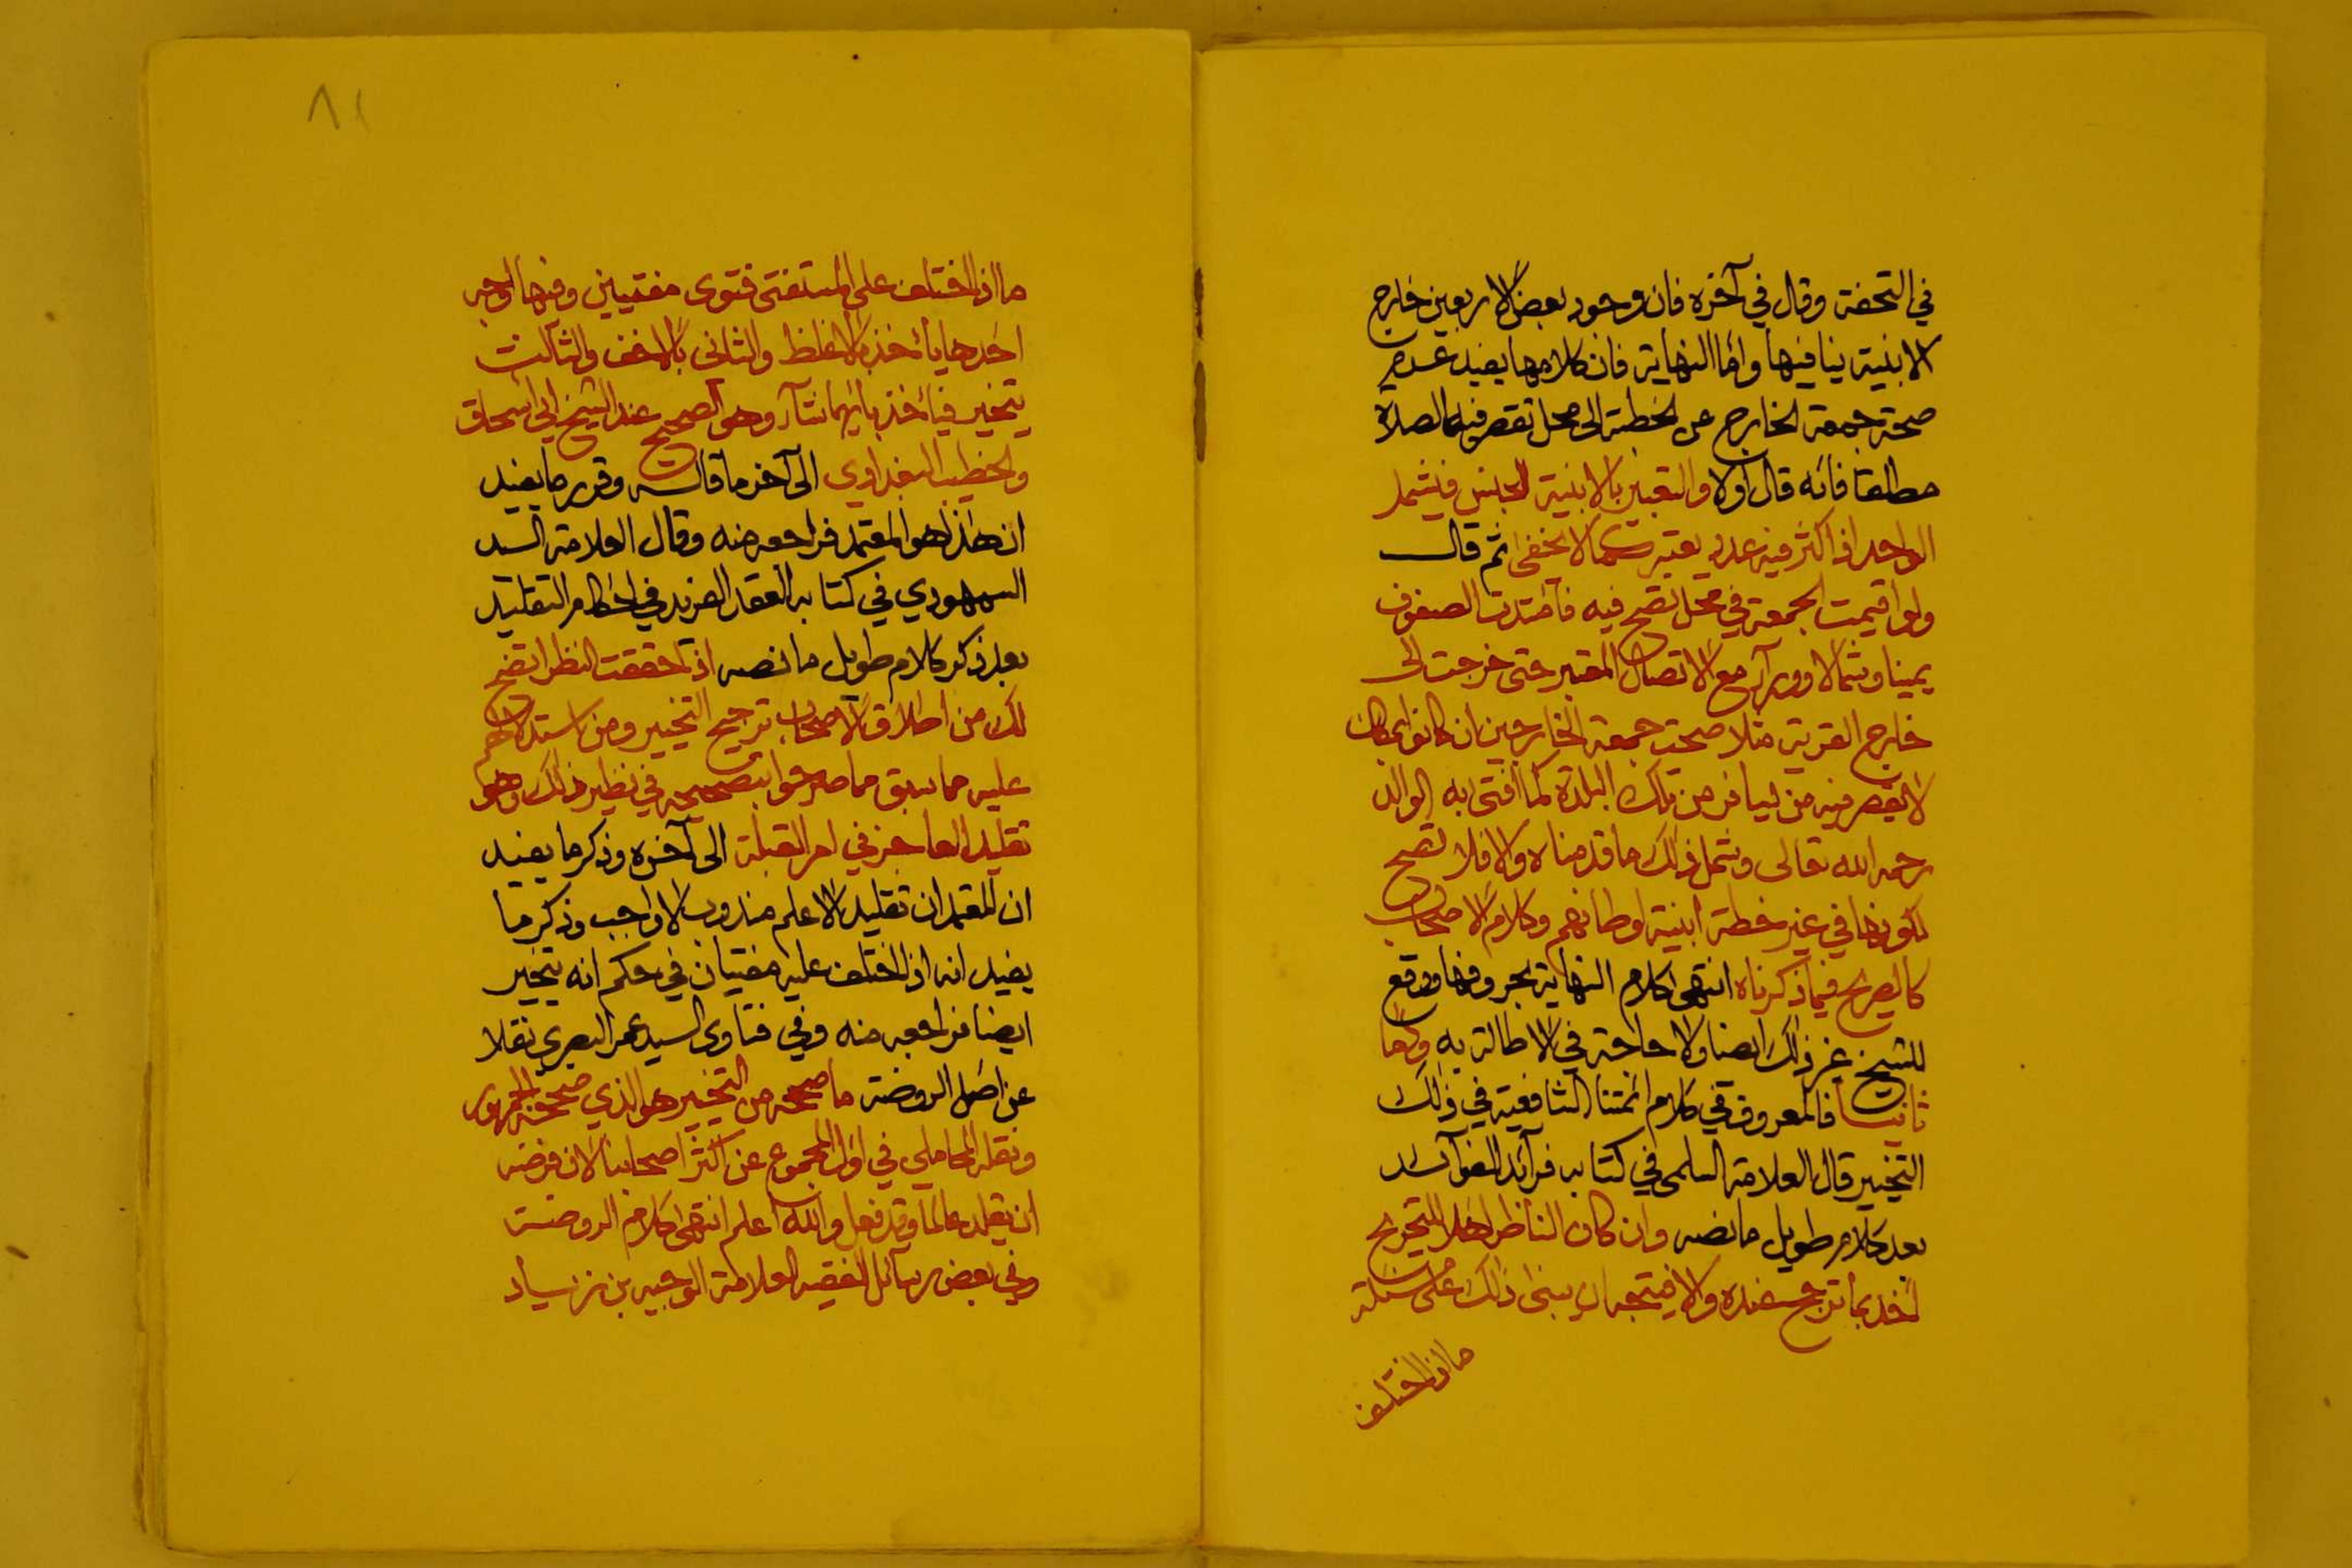 في التحفة وقال في آخره فان وجود بعض الاربعين خارج
الابنية ينافيها واما النهاية فان كلامها يفيد عدم
صحة جمعة الخارج عن الخطة الى محل تقصر فيه الصلاة
مطلقا فانه قال اولا والتعبير بالابنية للجنس فيشمل
الواحد اذا كثر فيه عدد يعتبر كما لا يخفى ثم قال
ولو اقيمت الجمعة في محل تصح فيه فامتدت الصفوف
يمينا وشمالا وورآء مع الاتصال المعتبر حتى خرجت الى
خارج القرية مثلا صحت جمعة الخارجين ان كانوا بمكان
لا يقصر فيه من يسافر من تلك البلدة كما افتى به الوالد
رحمه الله تعالى وشمل ذلك ما قدمناه والا فلا تصح
لكونها في غير خطة ابنية اوطانهم وكلام الاصحاب
كالصريح فيما ذكرناه انتهى كلام النهاية بحروفها ووقع
للشيخ غير ذلك ايضا ولا حاجة في الاطالة به واما
ثانيا فالمعروف في كلام ائمتنا الشافعية في ذلك
التخيير قال العلامة السلمي في كتابه فرآئد الفوآئد
بعد كلام طويل ما نصه وان كان الناظر اهلا للتخريج
اخذ بما ترجح عنده والا فيتجه ان يبنى ذلك على مسئلة
ما اذا اختلف
٨١
ما اذا اختلف على المستفتى فتوى مفتيين وفيها اوجه
احدها يأخذ بالاغلظ والثانى بالاخف والثالث
يتخير فيأخذ بايهما شآء وهو الصحيح عند الشيخ ابي اسحاق
والخطيب البغدادي الى آخر ما قاله وقرر ما يفيد
ان هذا هو المعتمد فراجعه منه وقال العلامة السيد
السمهودي في كتابه العقد الفريد في احكام التقليد
بعد ذكر كلام طويل ما نصه اذا حققت النظر اتضح
لك من اطلاق الاصحاب ترجيح التخيير ومن استدلالهم
عليه مما سبق مما صرحوا بتصحيحه في نظير ذلك وهو
تقليد العاجز في امر القبلة الى آخره وذكر ما يفيد
ان المعتمد ان تقليد الاعلم مندوب لا واجب وذكر ما
يفيد انه اذا اختلف عليه مفتيان في حكم انه يتخير
ايضا فراجعه منه وفي فتاوى السيد عمر البصري نقلا
عن اصل الروضة ما صححه من التخيير هو الذي صححه الجمهور
ونقله المحاملي في اول المجموع عن اكثر اصحابنا لان فرضه
ان يقلد عالما وقد فعل والله اعلم انتهى كلام الروضة
وفي بعض رسآئل الفقيه العلامة الوجيه بن زياد